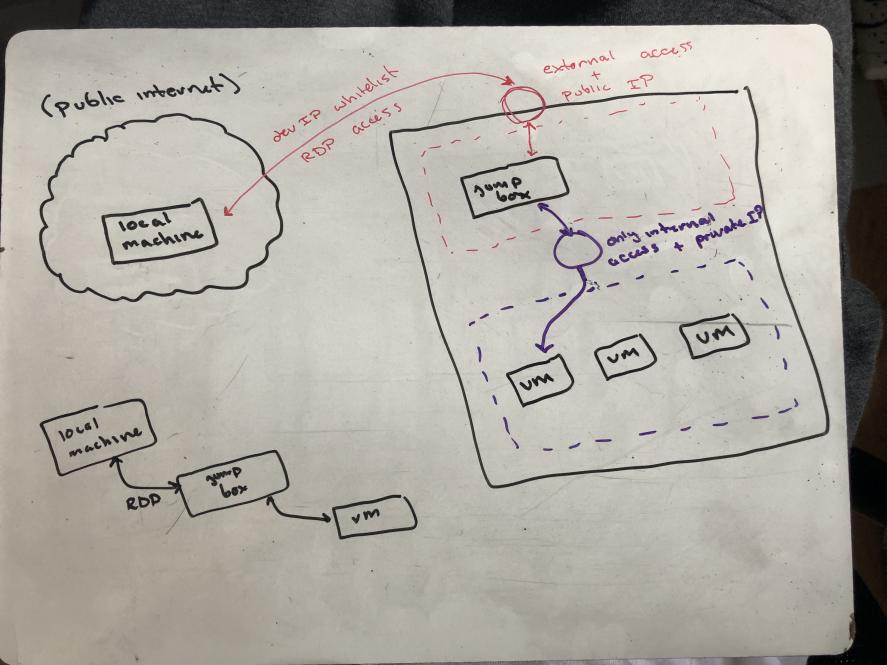 (public internet)
local
machine
dev IP whitelist
RDP access
external access
+
public IP
jump
box
only internal
access + private IP
vm
vm
vm
local
machine
RDP
jump
box
vm